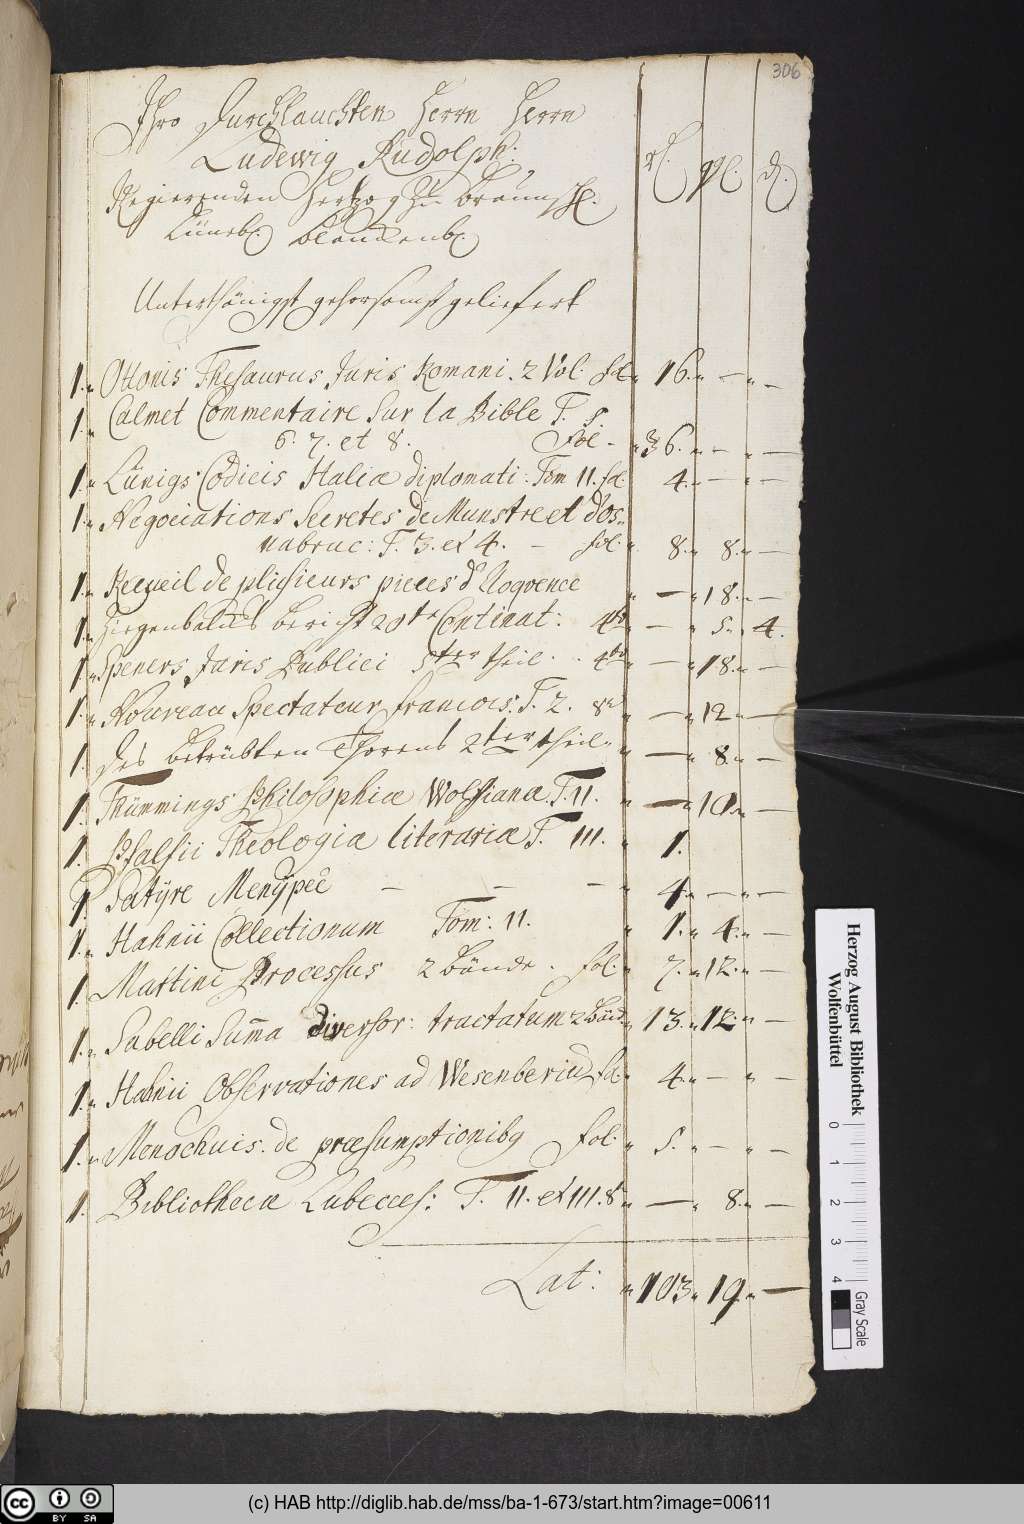 306
Ihro Durchlauchten Herrn Herrn
Ludewig Rudolph:
Regierenden Hertzog zu Braunschl.
Lüneb. Blanckenb.
rl. gl. d.
Unterthänigst gehorsamst geliefert
1. Ottonis Thesaurus Juris Romani. 2 Vol. fol 16. — —
1. Calmet Commentaire Sur la Bible T. 5.
6. 7. et 8. Fol - 36. — —
1. Lünigs Codicis Italiæ diplomati: Tom II. fol. 4. — —
1. Negociations Secretes de Munstre et d'Os-
nabruc: T. 3. et 4. — fol. 8. 8. —
1. Recueil de plusieurs pieces d'Eloqvence — 18. —
1. Ziegenbalds bericht 20te Continuat: 4to — 5. 4.
1. Speners Juris Publici 5ter theil. 4to — 18. —
1. Nouveau Spectateur francois. T. 2. 8o — 12 —
1. Des betrübten Thorens 2ter theil — 8. —
1. Thümmings Philosophiæ Wolfiana. T. II. — 10. —
1. Pfaffii Theologia literariæ T. III. 1.
1. Satÿre Menÿpeê — — — 4. — —
1. Hahnii Collectionum Tom: II. 1. 4. —
1. Martini Processus 2 bände. fol. 7. 12. —
1. Sabelli Sum̄a diversor: tractatum 2 Bänd 13. 12. —
1. Hahnii Observationes ad Wesenbecium fol. 4. — —
1. Menochuis. de præsumptionibq fol. 5. — —
1. Bibliotheca Lubecces: T. II. et III. 8o — 8. —
Lat: 103. 19. —
Herzog August Bibliothek
Wolfenbüttel
0 1 2 3 4
Gray Scale
cc BY SA
(c) HAB http://diglib.hab.de/mss/ba-1-673/start.htm?image=00611